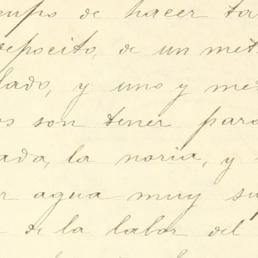 empo de hacer tor
deposito, de un met
lado, y uno y me
os son tener para
ada, la noria, y
r agua muy su
de la labor del